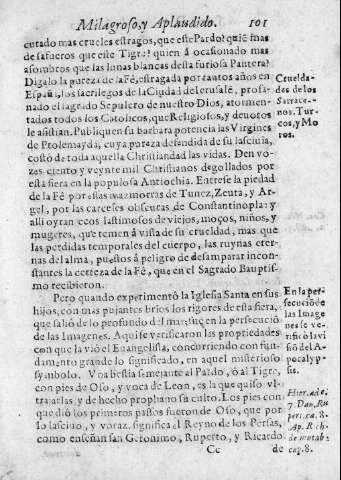 Milagroso, y Aplaudido. 101
cutado mas crueles estragos, que este Pardo? quiē mas
desafueros que este Tigre? quien á ocasionado mas
asombros que las lunas blancas desta furiosa Pantera?
Digalo la pureza de la Fé, estragada por tantos años en
España, los sacrilegos de la Ciudad de Ierusalē, profa-
nado el sagrado Sepulcro de nuestro Dios, atormen-
tados todos los Catolicos, que Religiosos, y devotos
le asistian. Publiquen su barbara potencia las Virgines
de Ptolemayda, cuya pureza defendida de su lascivia,
costó de toda aquella Christiandad las vidas. Den vo-
zes ciento y veynte mil Christianos degollados por
esta fiera en la populosa Antiochia. Entrese la piedad
de la Fé por essas mazmorras de Tunez, Zeuta, y Ar-
gel, por las carceles obscuras de Constantinopla: y
alli oyran ecos lastimosos de viejos, moços, niños, y
mugeres, que temen á vista de su crueldad, mas que
las perdidas temporales del cuerpo, las ruynas eter-
nas del alma, puestos á peligro de desamparar incon-
stantes la certeza de la Fé, que en el Sagrado Baptis-
mo recibieron.
Pero quando experimentó la Iglesia Santa en sus
hijos, con mas pujantes brios los rigores de esta fiera,
que salió de lo profundo del mar, fue en la persecució
de las Imagenes. Aqui se verificaron las propriedades
con que la vió el Euangelista, concurriendo con fun-
damento grande lo significado, en aquel misterioso
symbolo. Vna bestia semejante al Pardo, ó al Tigre,
con pies de Oso, y voca de Leon, es la que quiso vl-
trajarlas, y de hecho prophanó su culto. Los pies con
que dió los primeros passos fueron de Oso, que por
lo lascivo, y voraz significa el Reyno de los Persas,
como enseñan san Geronimo, Ruperto, y Ricardo
Cc de
Crueldades de los
Sarracenos, Turcos, y Moros.
En la persecució de
las Imagenes se verificó la visió del Apocalypsis.
Hier. ad c.
7. Dan. Ruperi. ca. 8.
Ap. Rich.
de
cap. 8.